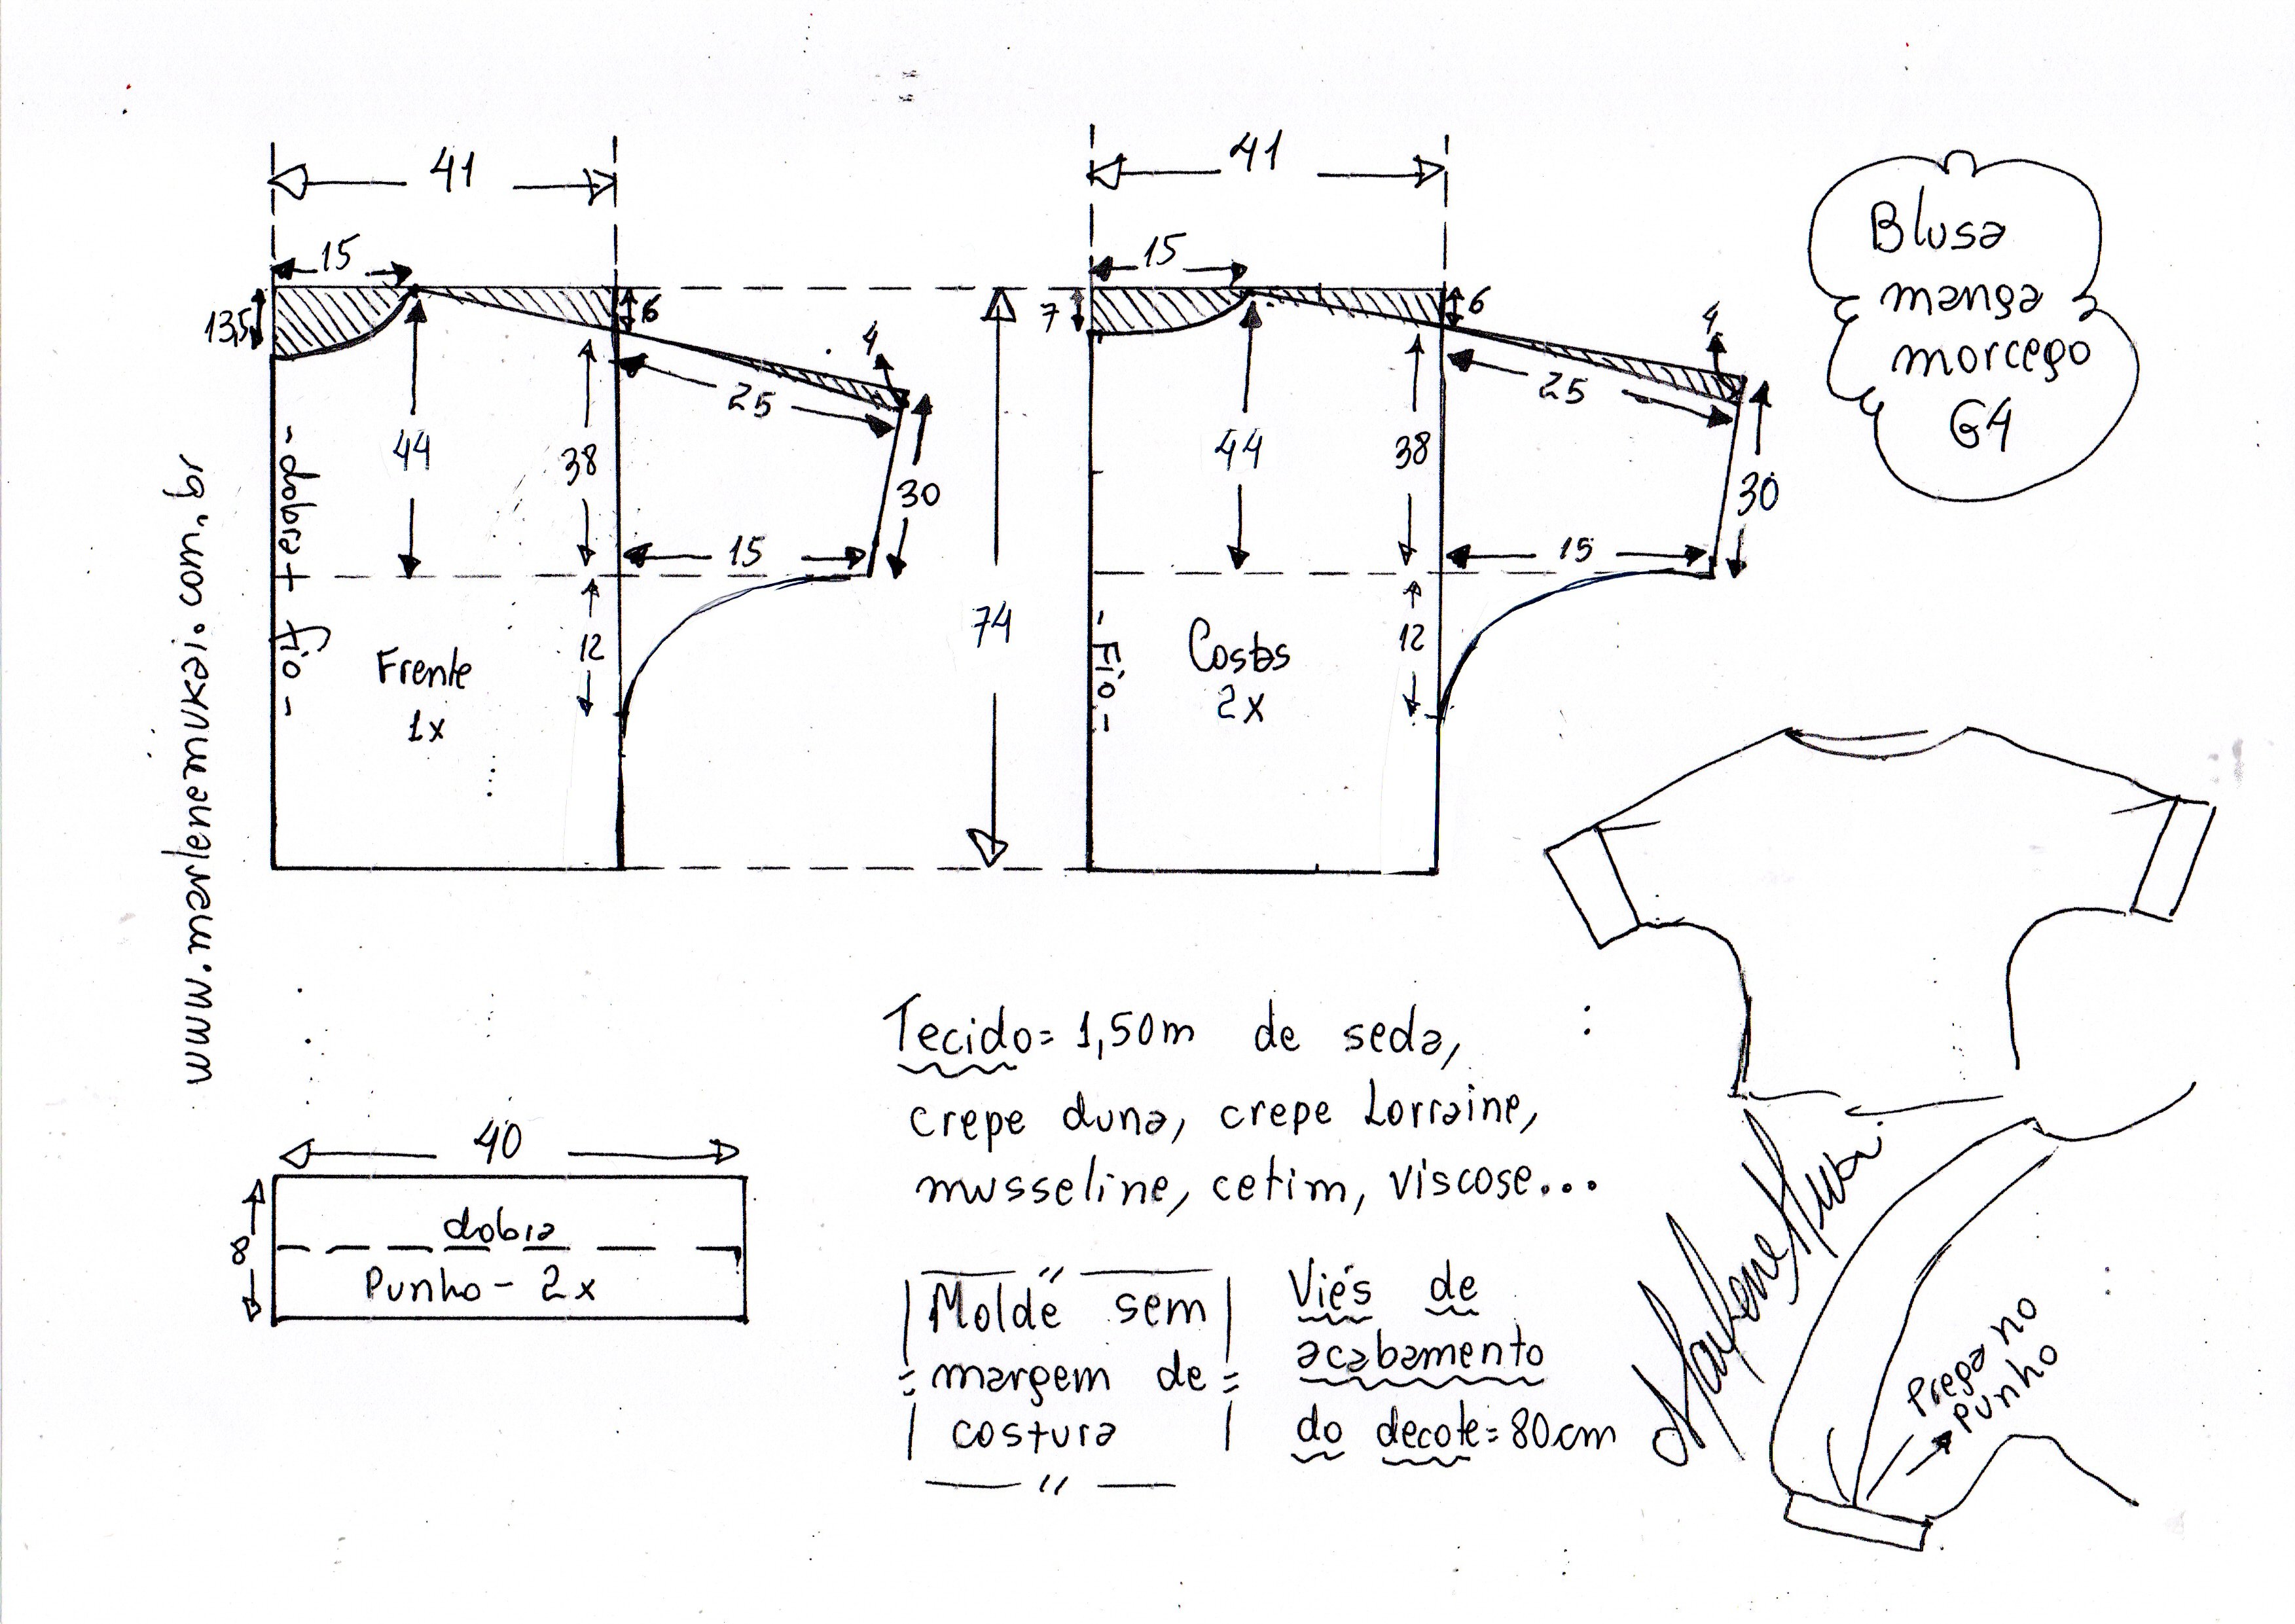 Blusa
manga
morcego
G4
41
15
13,5
6
4
44
38
25
30
15
12
- dobra + fio -
Frente
1x
74
41
15
7
6
4
44
38
25
30
15
12
- Fio -
Costas
2x
www.marlenemukai.com.br
40
8
dobra
Punho - 2x
Tecido = 1,50m de seda,
crepe duna, crepe Lorraine,
musseline, cetim, viscose...
Molde sem
margem de
costura
Viés de
acabamento
do decote = 80cm
Marlene Mukai
Prega no
punho